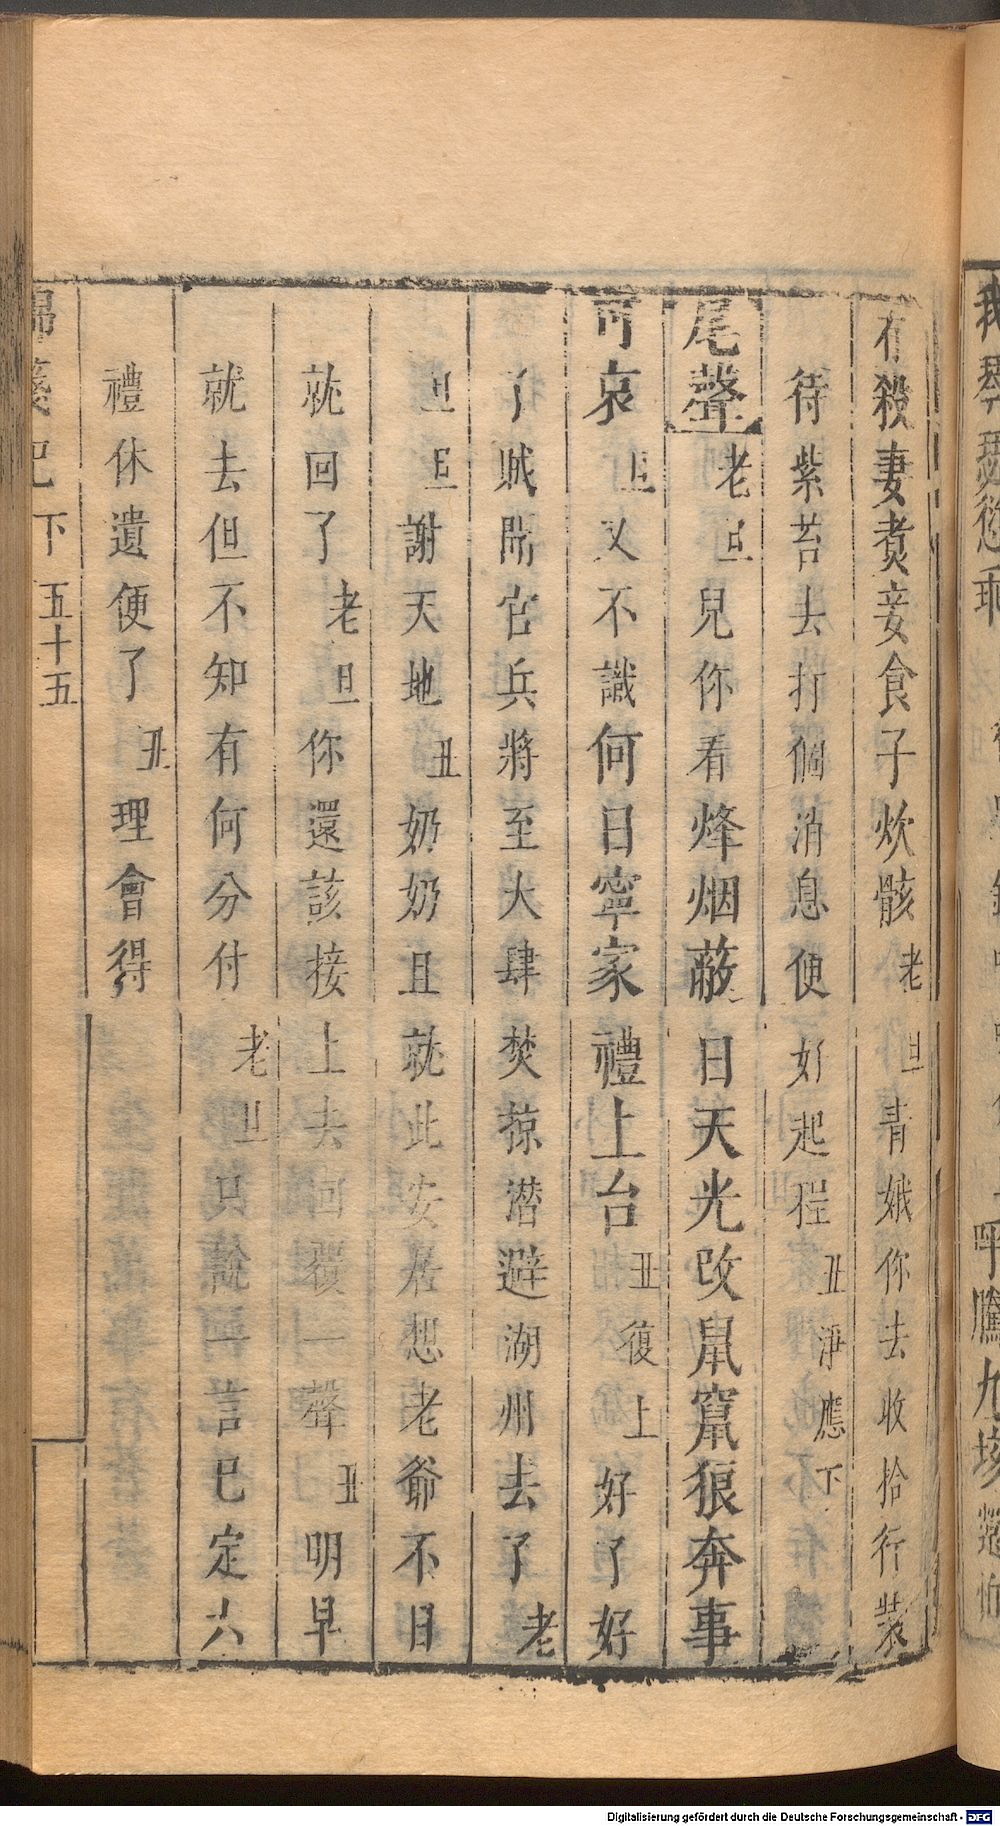 有殺妻煑妾食子炊骸老旦青娥你去收拾行裝
待紫苔去打個消息便好起程丑淨應下
尾聲老旦兒你看烽烟蔽日天光改鼠竄狼奔事
可哀旦又不識何日寧家禮上台丑復上好了好
了賊鬧官兵將至大肆焚掠潜避湖州去了老
旦旦謝天地丑奶奶且就此安居想老爺不日
就回了老旦你還該接上去回覆一聲丑明早
就去但不知有何分付老旦只說一言已定六
禮休遺便了丑理會得
箋記
下
五十五
Digitalisierung gefördert durch die Deutsche Forschungsgemeinschaft - DFG